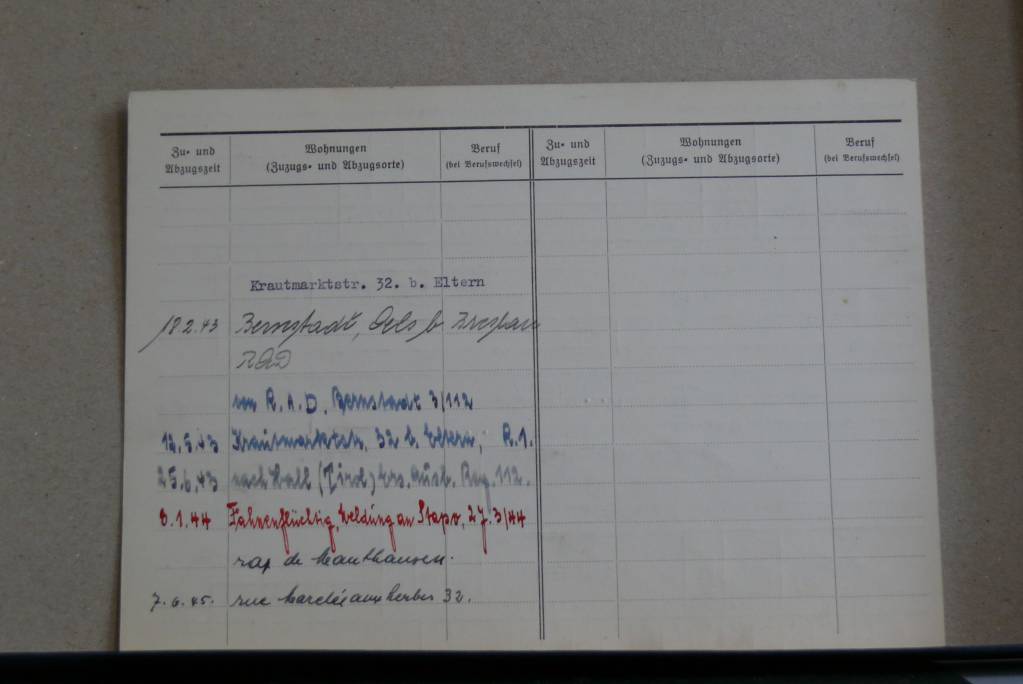 Zu- und Abzugszeit
Wohnungen
(Zuzugs- und Abzugsorte)
Beruf
(bei Berufswechsel)
Zu- und Abzugszeit
Wohnungen
(Zuzugs- und Abzugsorte)
Beruf
(bei Berufswechsel)
Krautmarktstr. 32. b. Eltern
18.2.43 Bernstadt, Oels b Breslau
RAD
von R.A.D. Bernstadt 3/112
12.5.43 Krautmarktstr. 32 b. Eltern, R.1.
25.6.43 nach Hall (Tirol) Ers. Ausb. Reg. 112.
8.1.44 Fahnenflüchtig, Meldung an Stapo, 27.3/44
rap de Mauthausen.
7.6.45. rue Marché aux herbes 32.